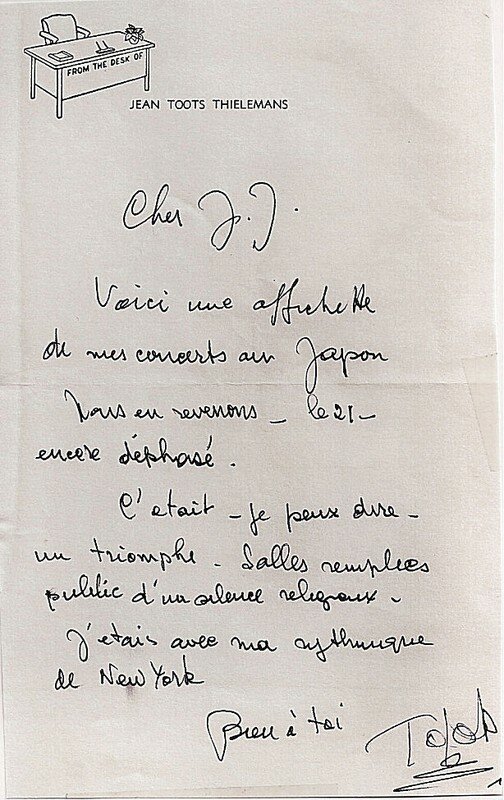 FROM THE DESK OF
JEAN TOOTS THIELEMANS
Cher J.J.
Voici une affichette
de mes concerts au Japon
Nous en revenons _ le 21 _
encore déphasé.
C'etait - je peux dire -
un triomphe - Salles remplies
public d'un silence religieux -
J'etais avec ma rythmique
de New York
Bien à toi
Toots